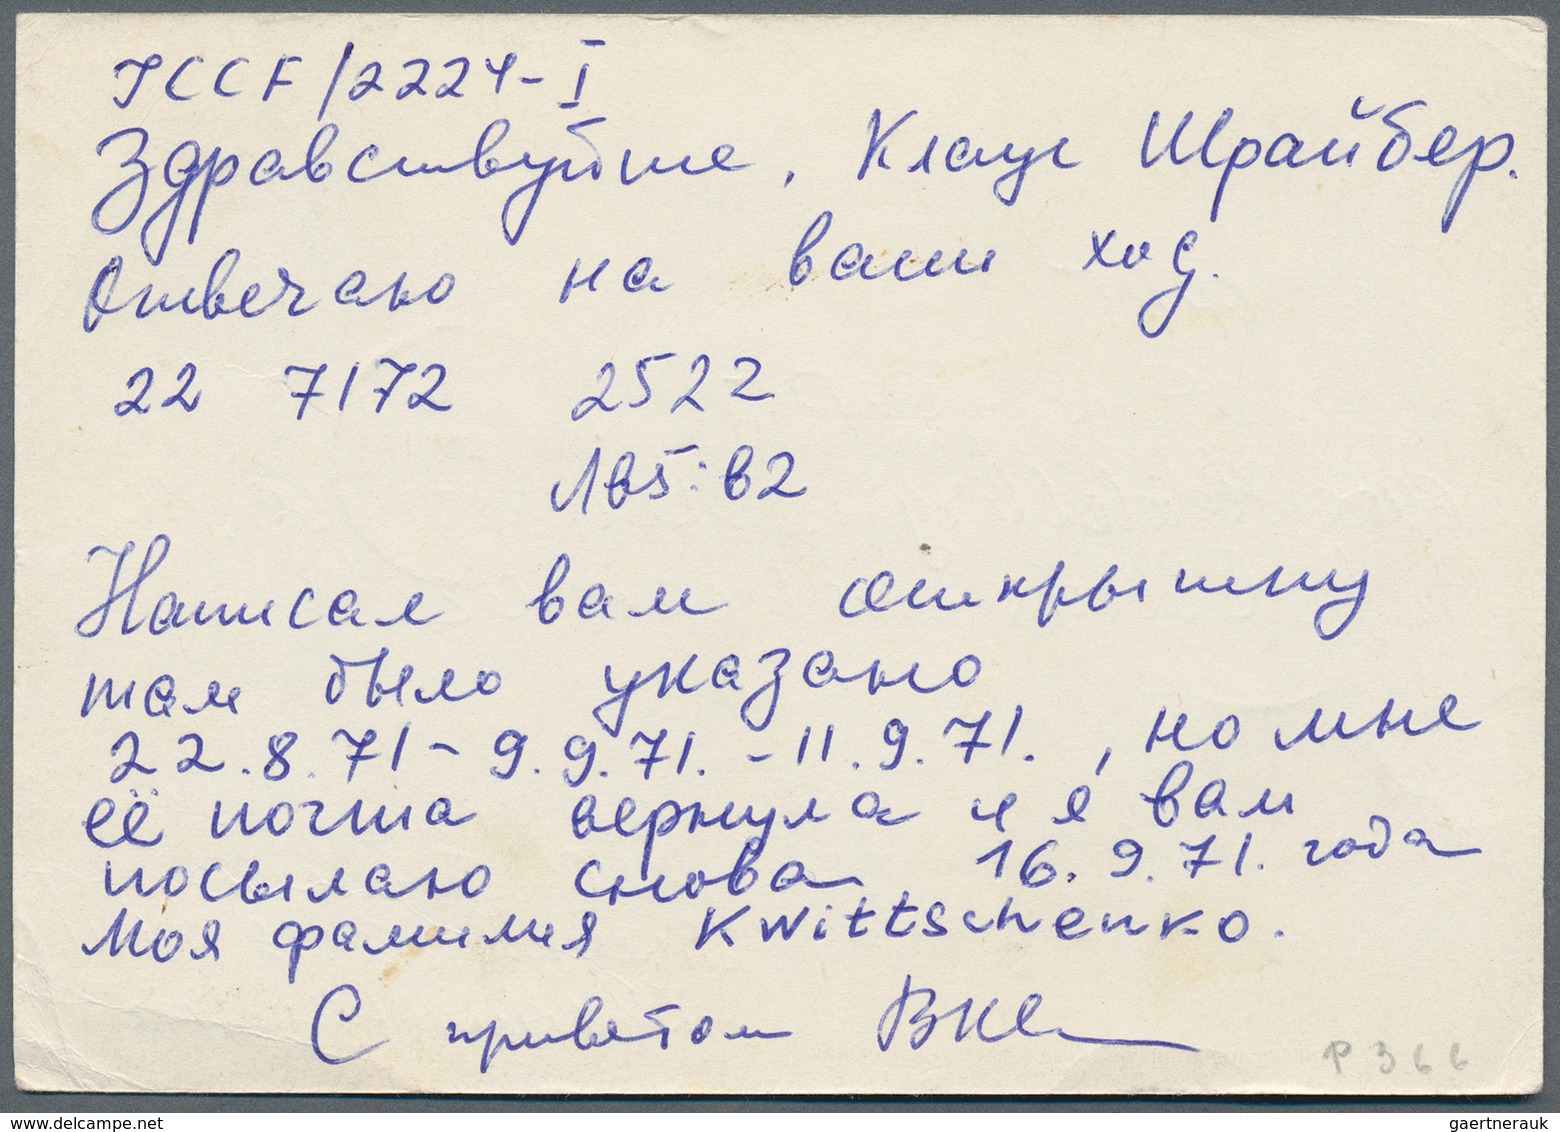 ICCF/2224-I
Здравствуйте, Клаус Шрайбер.
Отвечаю на ваш ход.
22 7172 2522
Лb5:b2
Написал вам открытку
там было указано
22.8.71-9.9.71.-11.9.71., но мне
её почта вернула и я вам
посылаю снова 16.9.71. года
Моя фамилия Kwittschenko.
С приветом
P 366
gaertnerauk